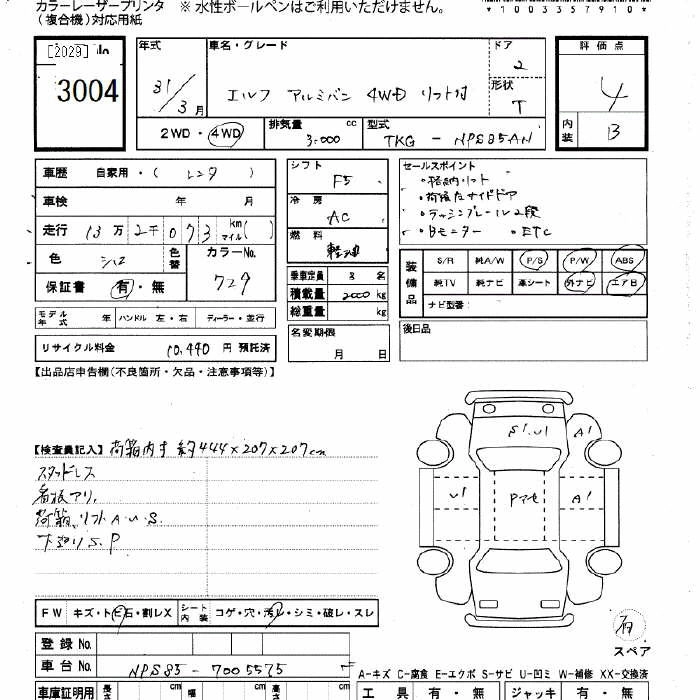 カラーレーザープリンタ ※ 水性ボールペンはご利用いただけません。
(複合機)対応用紙
*1003357910*
[2029]
3004
年式 31/3月
車名・グレード エルフ アルミバン 4WD リフト付
ドア 2
形状 T
評価点 4
内装 B
2WD・4WD
排気量 3.000 cc
型式 TKG - NPS85AN
車歴 自家用・( レンタ )
車検 年 月
走行 13万2千073 km マイル( )
色 シロ
色替
カラーNo. 729
保証書 有・無
シフト F5
冷房 AC
燃料 軽油
乗車定員 3 名
積載量 2000 kg
総重量 kg
セールスポイント
・格納リフト
・荷箱左サイドドア
・ラッシングレール2段
・Bモニター ・ETC
装備品 S/R 純A/W P/S P/W ABS
純TV 純ナビ 革シート 外ナビ エアB
ナビ型番:
モデル年式 年 ハンドル 左・右 ディーラー・並行
リサイクル料金 10,440 円 預託済
名変期限 月 日
後日品
【出品店申告欄(不良箇所・欠品・注意事項等)】
【検査員記入】 荷箱内寸 約444×207×207cm
スタッドレス
看板アリ
荷箱、リフトA.U.S.
下廻りS.P
S1.U1 A1
U1 Pマセ A1
スペア
FW キズ・トビ石・割レX シート内装 コゲ・穴・汚レ・シミ・破レ・スレ
登録No.
車台No. NPS85-7005575
A-キズ C-腐食 E-エクボ S-サビ U-凹ミ W-補修 XX-交換済
車庫証明用 長さ cm 幅 cm 高さ cm
工具 有・無 ジャッキ 有・無